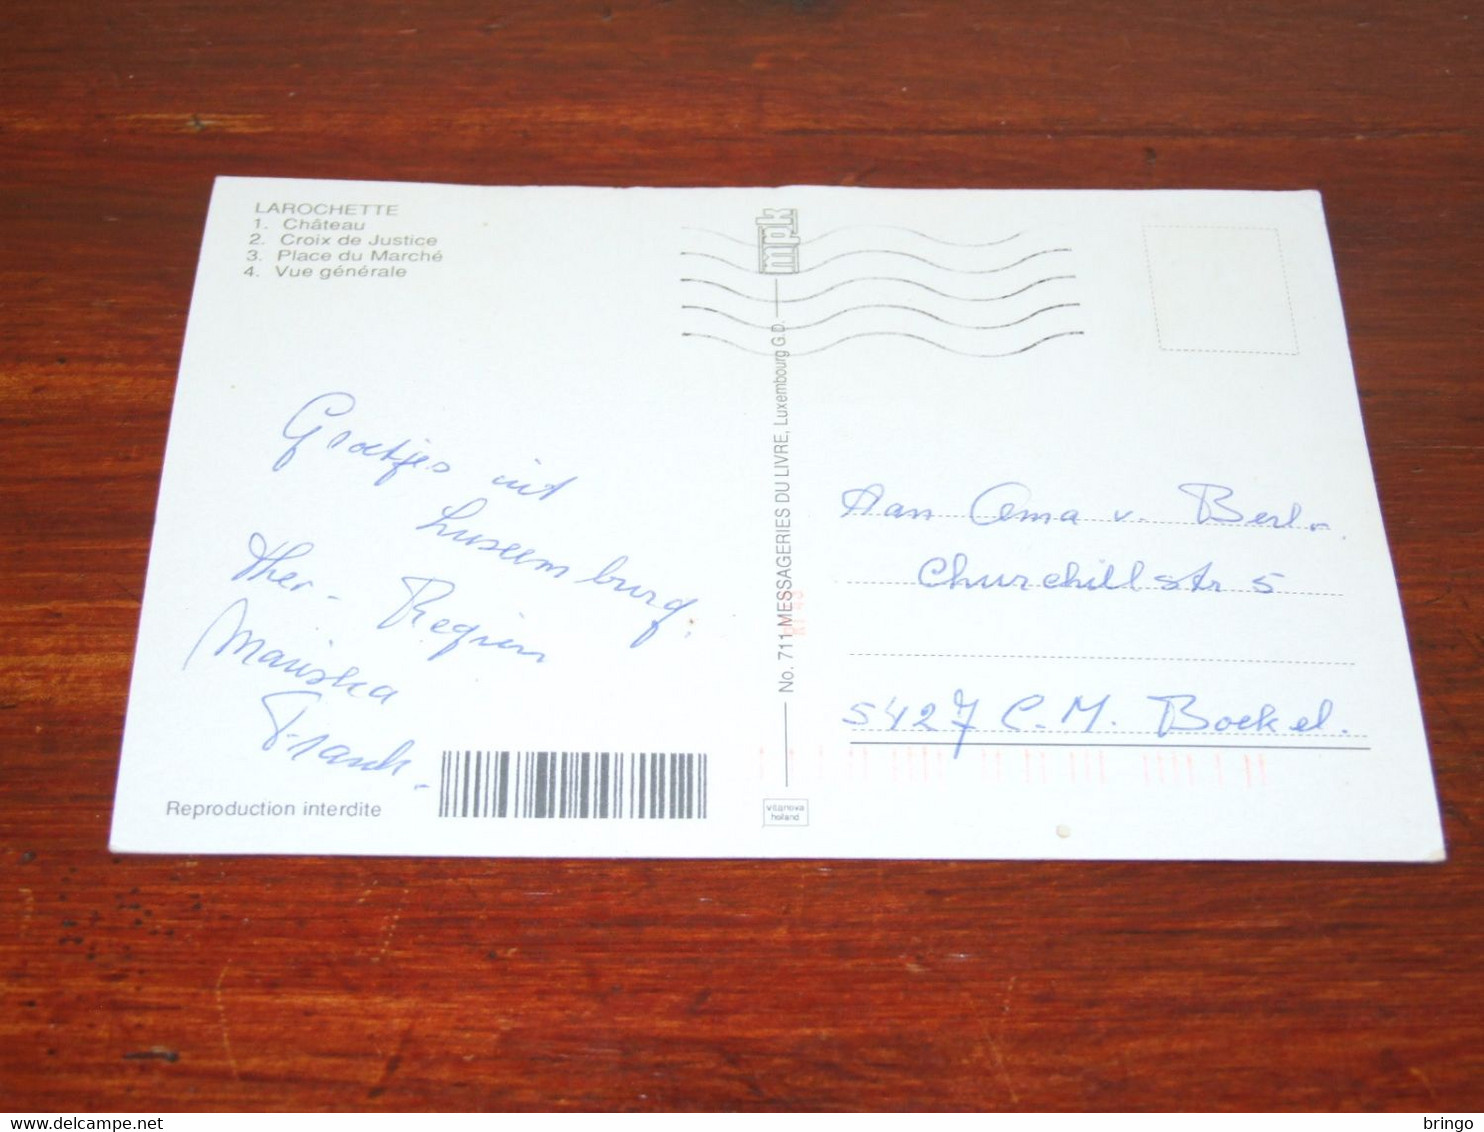 LAROCHETTE
1. Château
2. Croix de Justice
3. Place du Marché
4. Vue générale
mpk
No. 711 MESSAGERIES DU LIVRE, Luxembourg G.D.
Groetjes uit
Luseemburg.
Ther - Regien
Mariska
Franch.
Aan Oma v. Berl.
Churchillstr 5
5427 C.M. Boekel.
Reproduction interdite
vitanova
holand
delcampe.net
bringo